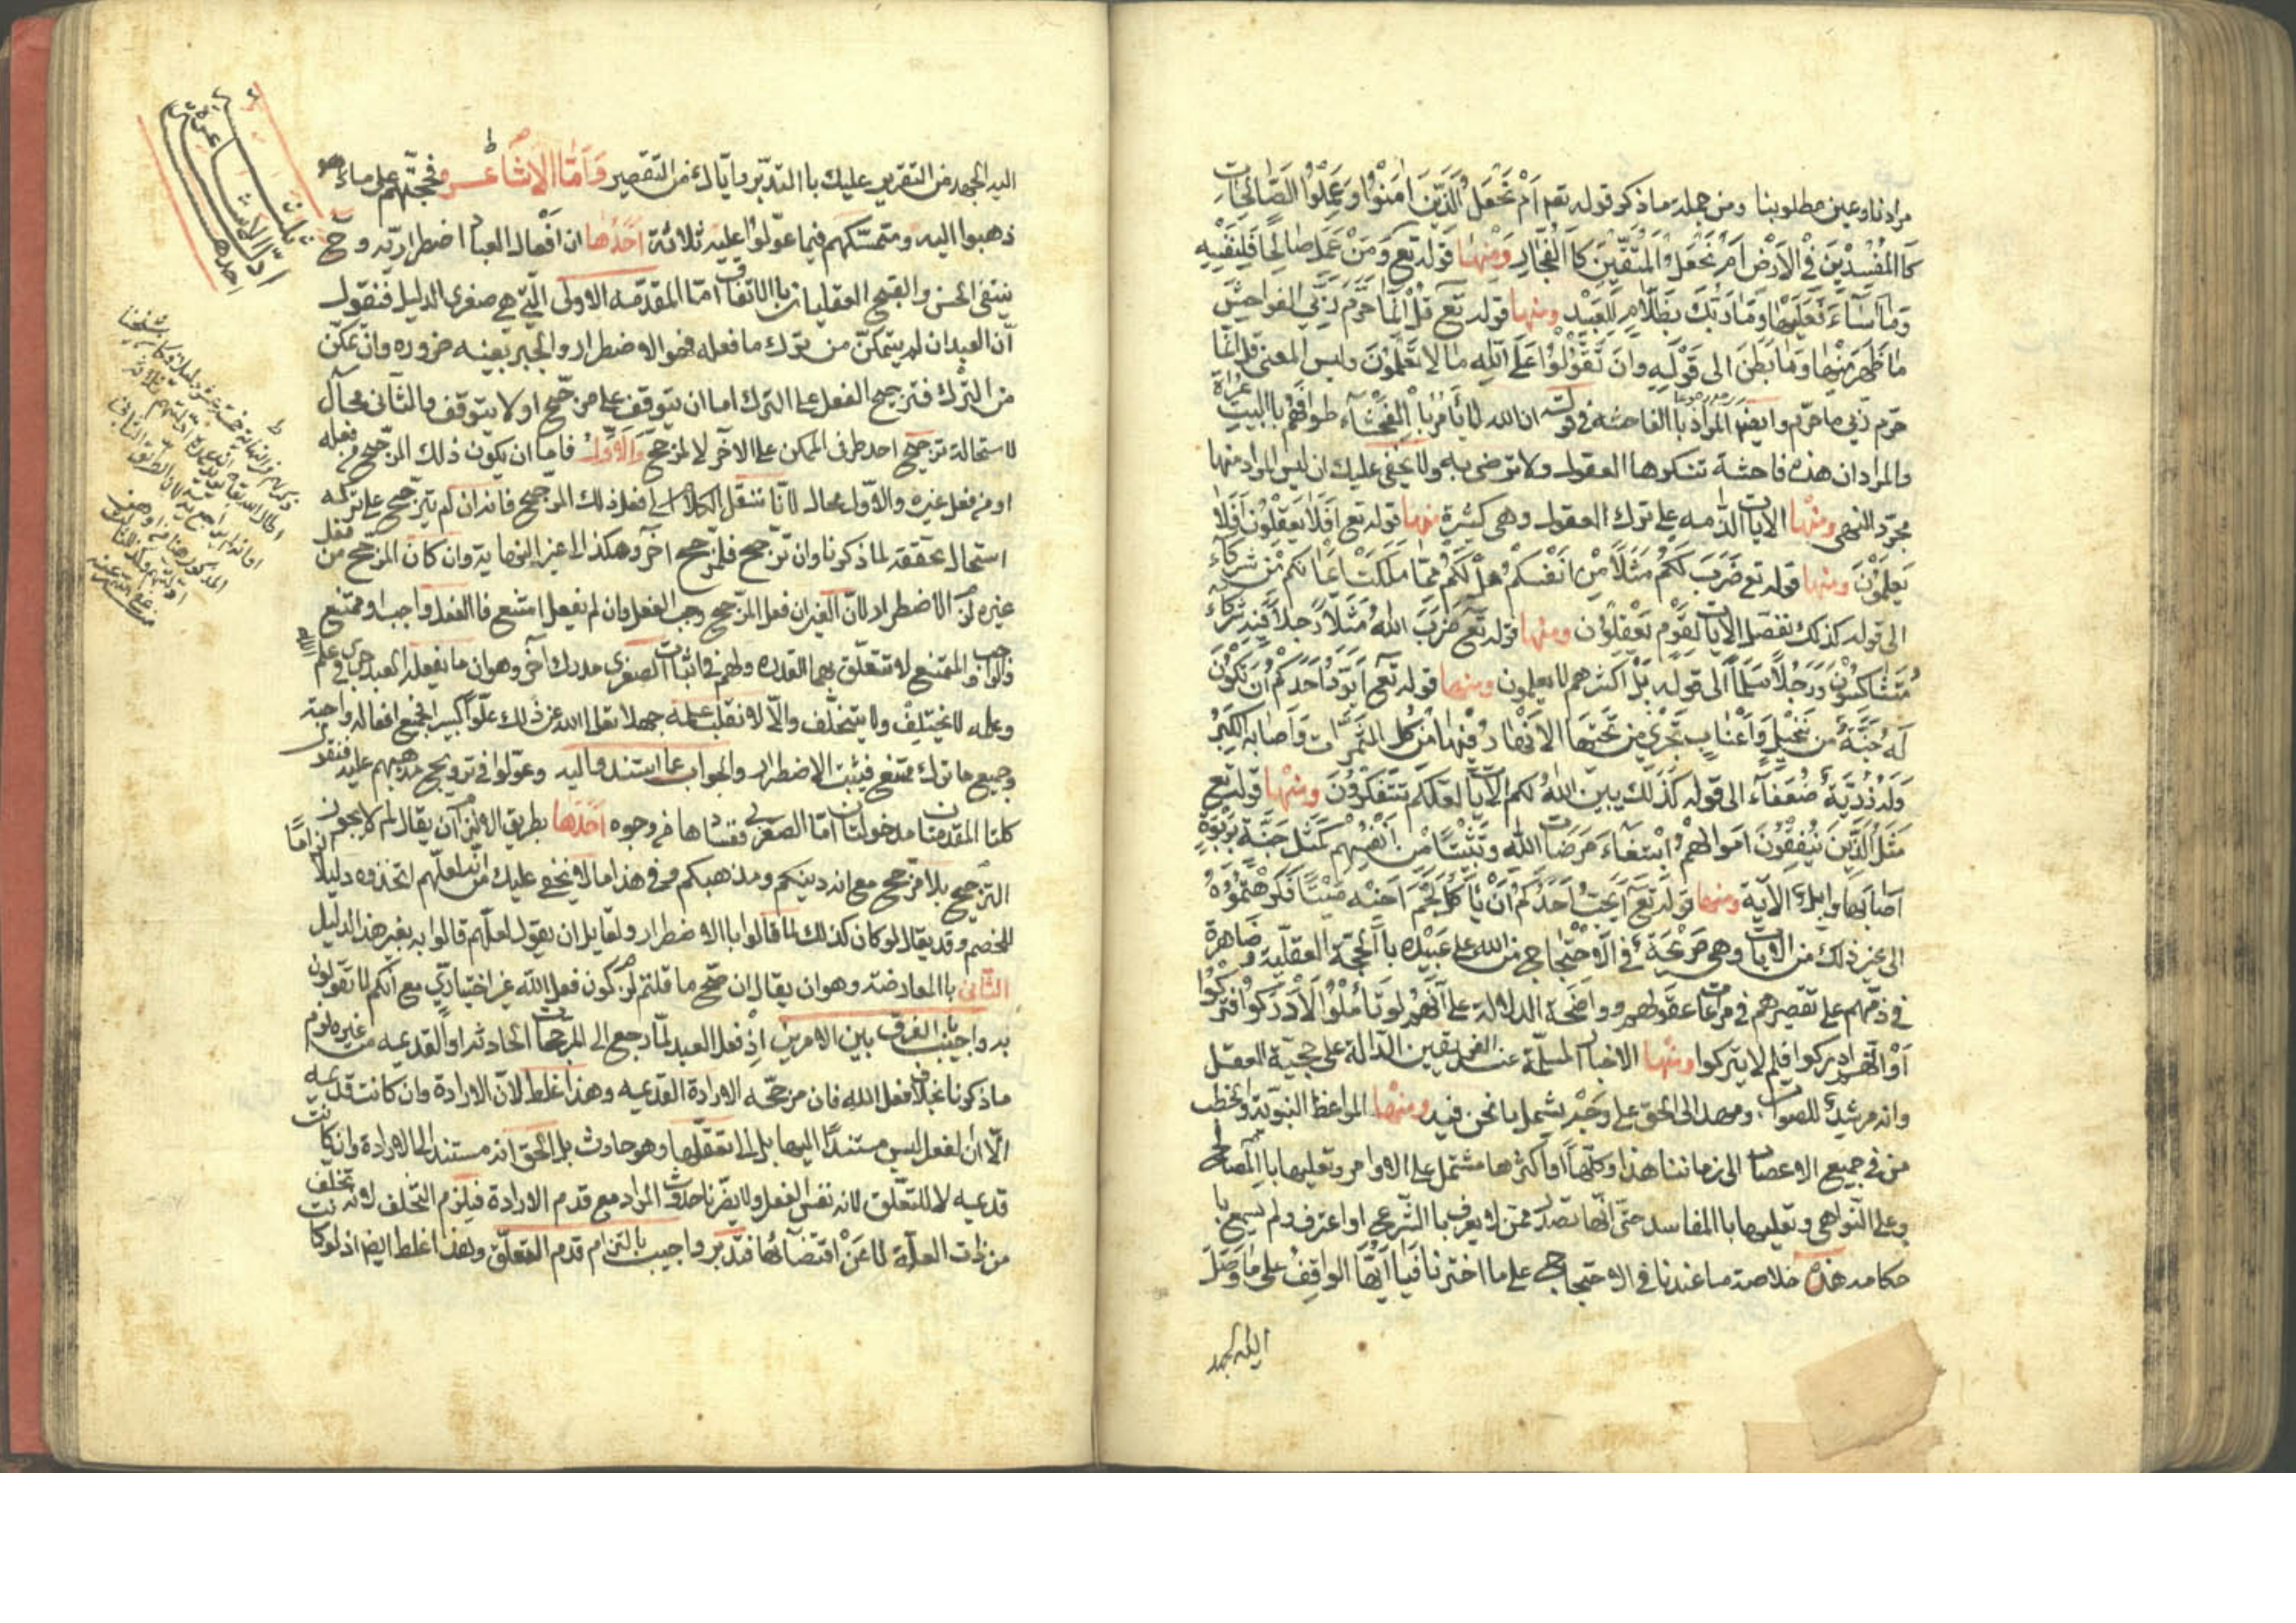 مرادنا وعين مطلوبنا ومن جملة ما ذكر قوله تعم اَمْ نَجْعَلُ الَّذِينَ اٰمَنُوا وَعَمِلُوا الصَّالِحَاتِ
كَالْمُفْسِدِينَ فِي الْاَرْضِ اَمْ نَجْعَلُ الْمُتَّقِينَ كَالْفُجَّارِ وَمِنْهَا قوله تع وَمَنْ عَمِلَ صَالِحًا فَلِنَفْسِهِ
وَمَنْ اَسَآءَ فَعَلَيْهَا وَمَا رَبُّكَ بِظَلَّامٍ لِلْعَبِيدِ ومنها قوله تع قُلْ اِنَّمَا حَرَّمَ رَبِّيَ الْفَوَاحِشَ
مَا ظَهَرَ مِنْهَا وَمَا بَطَنَ الى قَوْلِهِ وَاَنْ تَقُولُوا عَلَى اللهِ مَا لَا تَعْلَمُونَ وليس المعنى قل انما
حرّم ربّي ما حرّم وايضا المراد باالفاحشة في قوله ان الله لا يأمر باالفَحْشَآء طوافهم باالبيت عراة
والمراد ان هذه فاحشة تنكرها العقول ولا ترضى به ولا يخفى عليك ان ليس المراد منها
مجرّد النهي ومنها الايات الذّامه على ترك العقول وهي كثيرة منها قوله تع اَفَلَا يَعْقِلُونَ اَفَلَا
يَعْلَمُونَ ومنها قوله تع ضَرَبَ لَكُمْ مَثَلًا مِنْ اَنْفُسِكُمْ هَلْ لَكُمْ مِمَّا مَلَكَتْ اَيْمَانُكُمْ مِنْ شُرَكَآءَ
الى قوله كذلك نفصّل الآيات لِقَوْمٍ يَعْقِلُونَ ومنها قوله تع ضَرَبَ اللهُ مَثَلًا رَجُلًا فِيهِ شُرَكَآءُ
مُتَشَاكِسُونَ وَرَجُلًا سَلَمًا الى قوله بَلْ اكثرهم لا يعلمون ومنها قوله تع اَيَوَدُّ اَحَدُكُمْ اَنْ تَكُونَ
لَهُ جَنَّةٌ مِنْ نَخِيلٍ وَاَعْنَابٍ تَجْرِي مِنْ تَحْتِهَا الْاَنْهَارُ فِيهَا مِنْ كُلِّ الثَّمَرَاتِ وَاَصَابَهُ الْكِبَرُ
وَلَهُ ذُرِّيَّةٌ ضُعَفَآءُ الى قوله كَذٰلِكَ يُبَيِّنُ اللهُ لَكُمُ الْآيَاتِ لَعَلَّكُمْ تَتَفَكَّرُونَ وَمِنْهَا قوله تع
مَثَلُ الَّذِينَ يُنْفِقُونَ اَمْوَالَهُمُ ابْتِغَاءَ مَرْضَاتِ اللهِ وَتَثْبِيتًا مِنْ اَنْفُسِهِمْ كَمَثَلِ جَنَّةٍ بِرَبْوَةٍ
اَصَابَهَا وَابِلٌ الآية ومنها قوله تع اَيُحِبُّ اَحَدُكُمْ اَنْ يَأْكُلَ لَحْمَ اَخِيهِ مَيْتًا فَكَرِهْتُمُوهُ
الى غير ذلك من الايات وهي صَرِيحَة في الاحْتِجَاج من الله على عَبِيدِهِ باالحجة العقليّة وظاهرة
في ذمّهم على تقصيرهم في مراعات عقولهم وواضحة الدلالة على اَنَّهُمْ لو تأملوا لاَدْرَكُوا فتركُوا
اَوْ انّهم ادركوا فلم لا يتركوا ومنها الاخبار المسلّمة عند الفريقين الدالة على حجيّة العقل
وانه مرشِدٌ للصواب ومهد الى الحق على وَجْهٍ يشمل ما نحن فيه ومنها المواعظ النبوّية والخطب
من في جميع الاعصار الى زماننا هذا وكلّها او اكثرها مشتمل على الاوامر وتعليها باالمصالح
وعلى النواهي وتعليلها باالمفاسد حتى انّها تصدر ممن لا يعرف باالشّرع او اعترف ولم يسمع با
حكامه هذه خلاصة ما عندنا في الاحتجاج على ما اخترنا فيا اَيُّهَا الواقِفُ على ما وَصَلَ
اليه الجهد
اليه الجهد من التقرير عليك باالتدبّر وايّاك من التقصير وَاَمَّا الاَشَاعَرَة فحجّتهم على ما
ذهبوا اليه ومتمسّكهم فيما عوّلوا عليه ثلاثة اَحَدُهَا ان اَفْعال العباد اضطراريّة وح
ينتفي الحسن والقبح العقليان باالاتفاق امّا المقدّمة الاولى التي هي صغرى الدليل فنقول
انّ العبد ان لم يتمكّن من ترك ما فعله فهو الاضطرار والجبر بعينه ضرورة وان تمكّن
من الترك فترجيح الفعل على الترك اما ان يتوقف على مرجّح او لا يتوقف والثاني محال
لاستحالة ترجيح احد طرفي الممكن على الآخر لا لمرجح والاَوّل فاما ان يكون ذلك المرجّح من فعله
او من فعل غيره والاوّل محال لانّا ننقل الكلام الى فعل ذلك المرجّح فانه ان لم يترجّح على تركه
استحال تحققه لما ذكرنا وان ترجّح فلمرجّح آخر وهكذا الى غير النهاية وان كان المرجّح من فعل
غيره لزم الاضطرار لانّ الغير ان فعل المرجّح وجب الفعل وان لم يفعل امتنع فاالفعل واجب او ممتنع
والواجب والممتنع لا تتعلّق بهما القدرة ولهم في اثبات الصغرى مدرك آخر وهو ان ما يفعله العبد جرى في علم الله
وعلمه لا يختلف ولا يتخلّف والّا لانقلب علمه جهلا تعالى الله عن ذلك علوّا كبيرا فجميع افعاله واجبة
وجميع ما ترك ممتنع فيثبت الاضطرار والجواب عما استندوا اليه وعوّلوا في ترويج مذهبهم عليه فنقول
كلتا المقدمتان مدخولتان امّا الصغرى ففسادها من وجوه اَحَدهَا بطريق الالزام ان يقال لم لا يجوز
الترجّيح بلا مرجّح مع انه دينكم ومذهبكم وفي هذا ما لا يخفى عليك من انّه لعلّهم اتخذوه دليلا
للخصم وقد يقال لو كان كذلك لما قالوا باالاضطرار ولقايل ان يقول لعلّهم قالوا به بغير هذا الدليل
الثّانى باالمعارضة وهو ان يقال ان صحّ ما قلتم لزم كون فعل الله غير اختياريّ مع انكم لا تقولون
به واجيب باالفرق بين الامرين اذْ فعل العبد لمّا رجع الى المرجحات الحادثه او القديمة من غيره لزم
ما ذكرنا بخلاف فعل الله فان مرجّحه الارادة القديمه وهذا غلط لانّ الارادة وان كانت قديمه
الّا ان الفعل ليس مستندًا اليها بل الى تعلّقها وهو حادث بل الحق انه مستند الى الارادة وان كانت
قديمه لا للتعلّق لانه نفس الفعل ولا يضرّنا حدوث المراد مع قدم الارادة فيلزم التخلف لانه تخلف
من ذات العلّة لا عَنْ اقتضائها فتدبّر واجيب بالتزام قدم التعلّق وهذا غلط ايضا اذ لو كانت
ادلّة الاشاعرة
احدها